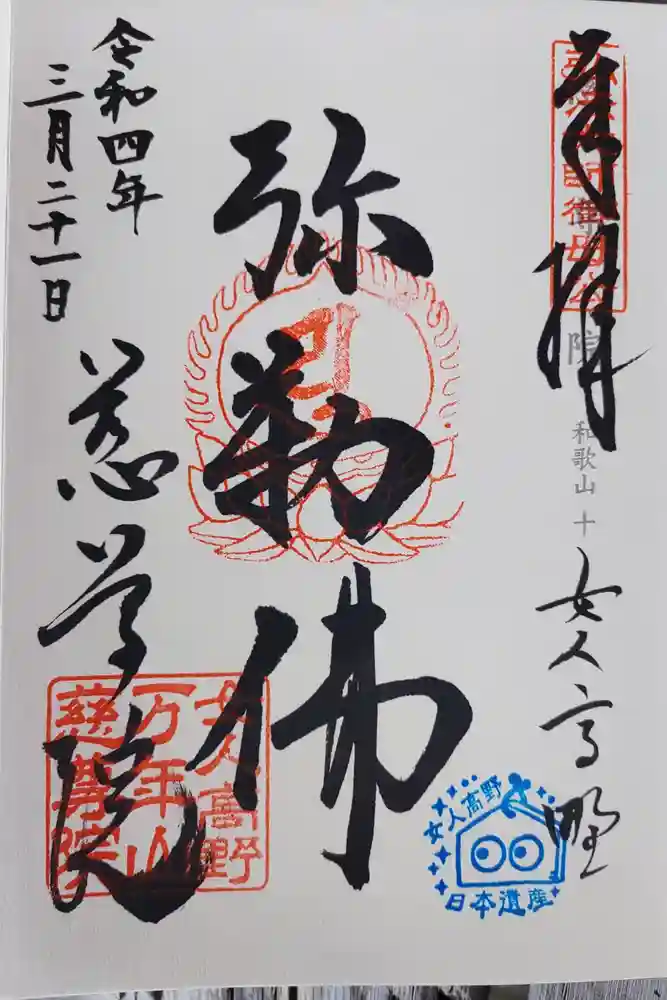 奉拝
弘法大師御母公
院 和歌山 十
女人高野
弥勒佛
女人高野
日本遺産
令和四年
三月二十一日
慈尊院
女人高野
万年山
慈尊院